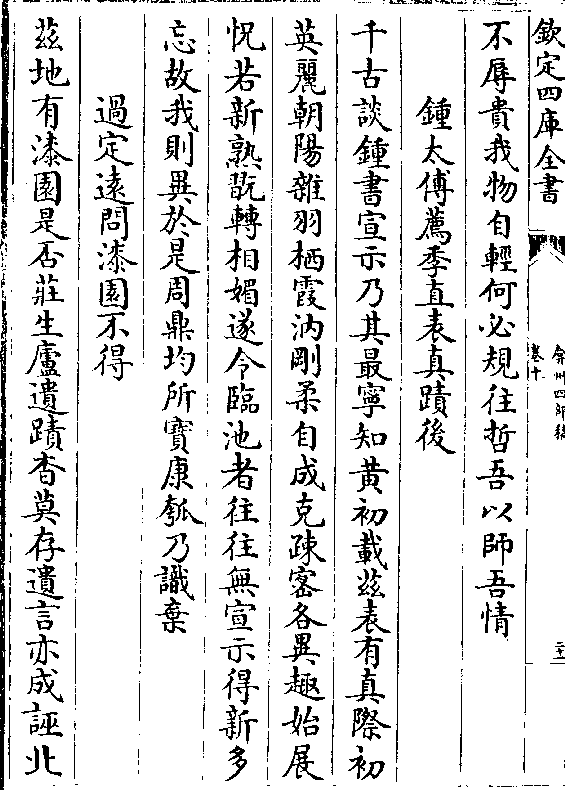 欽定四庫全書
弇州四部稿
卷十
不辱貴我物自輕何必規往哲吾以師吾情
鍾太傅薦季直表真蹟後
千古談鍾書宣示乃其最寧知黄初載兹表有真際初
英麗朝陽雜羽栖霞汭剛柔自成克疎宻各異趣始展
怳若新熟翫轉相媚遂令臨池者往往無宣示得新多
忘故我則異於是周鼎均所寶康瓠乃識棄
過定遠問漆園不得
兹地有漆園是否莊生廬遺蹟杳莫存遺言亦成誣北